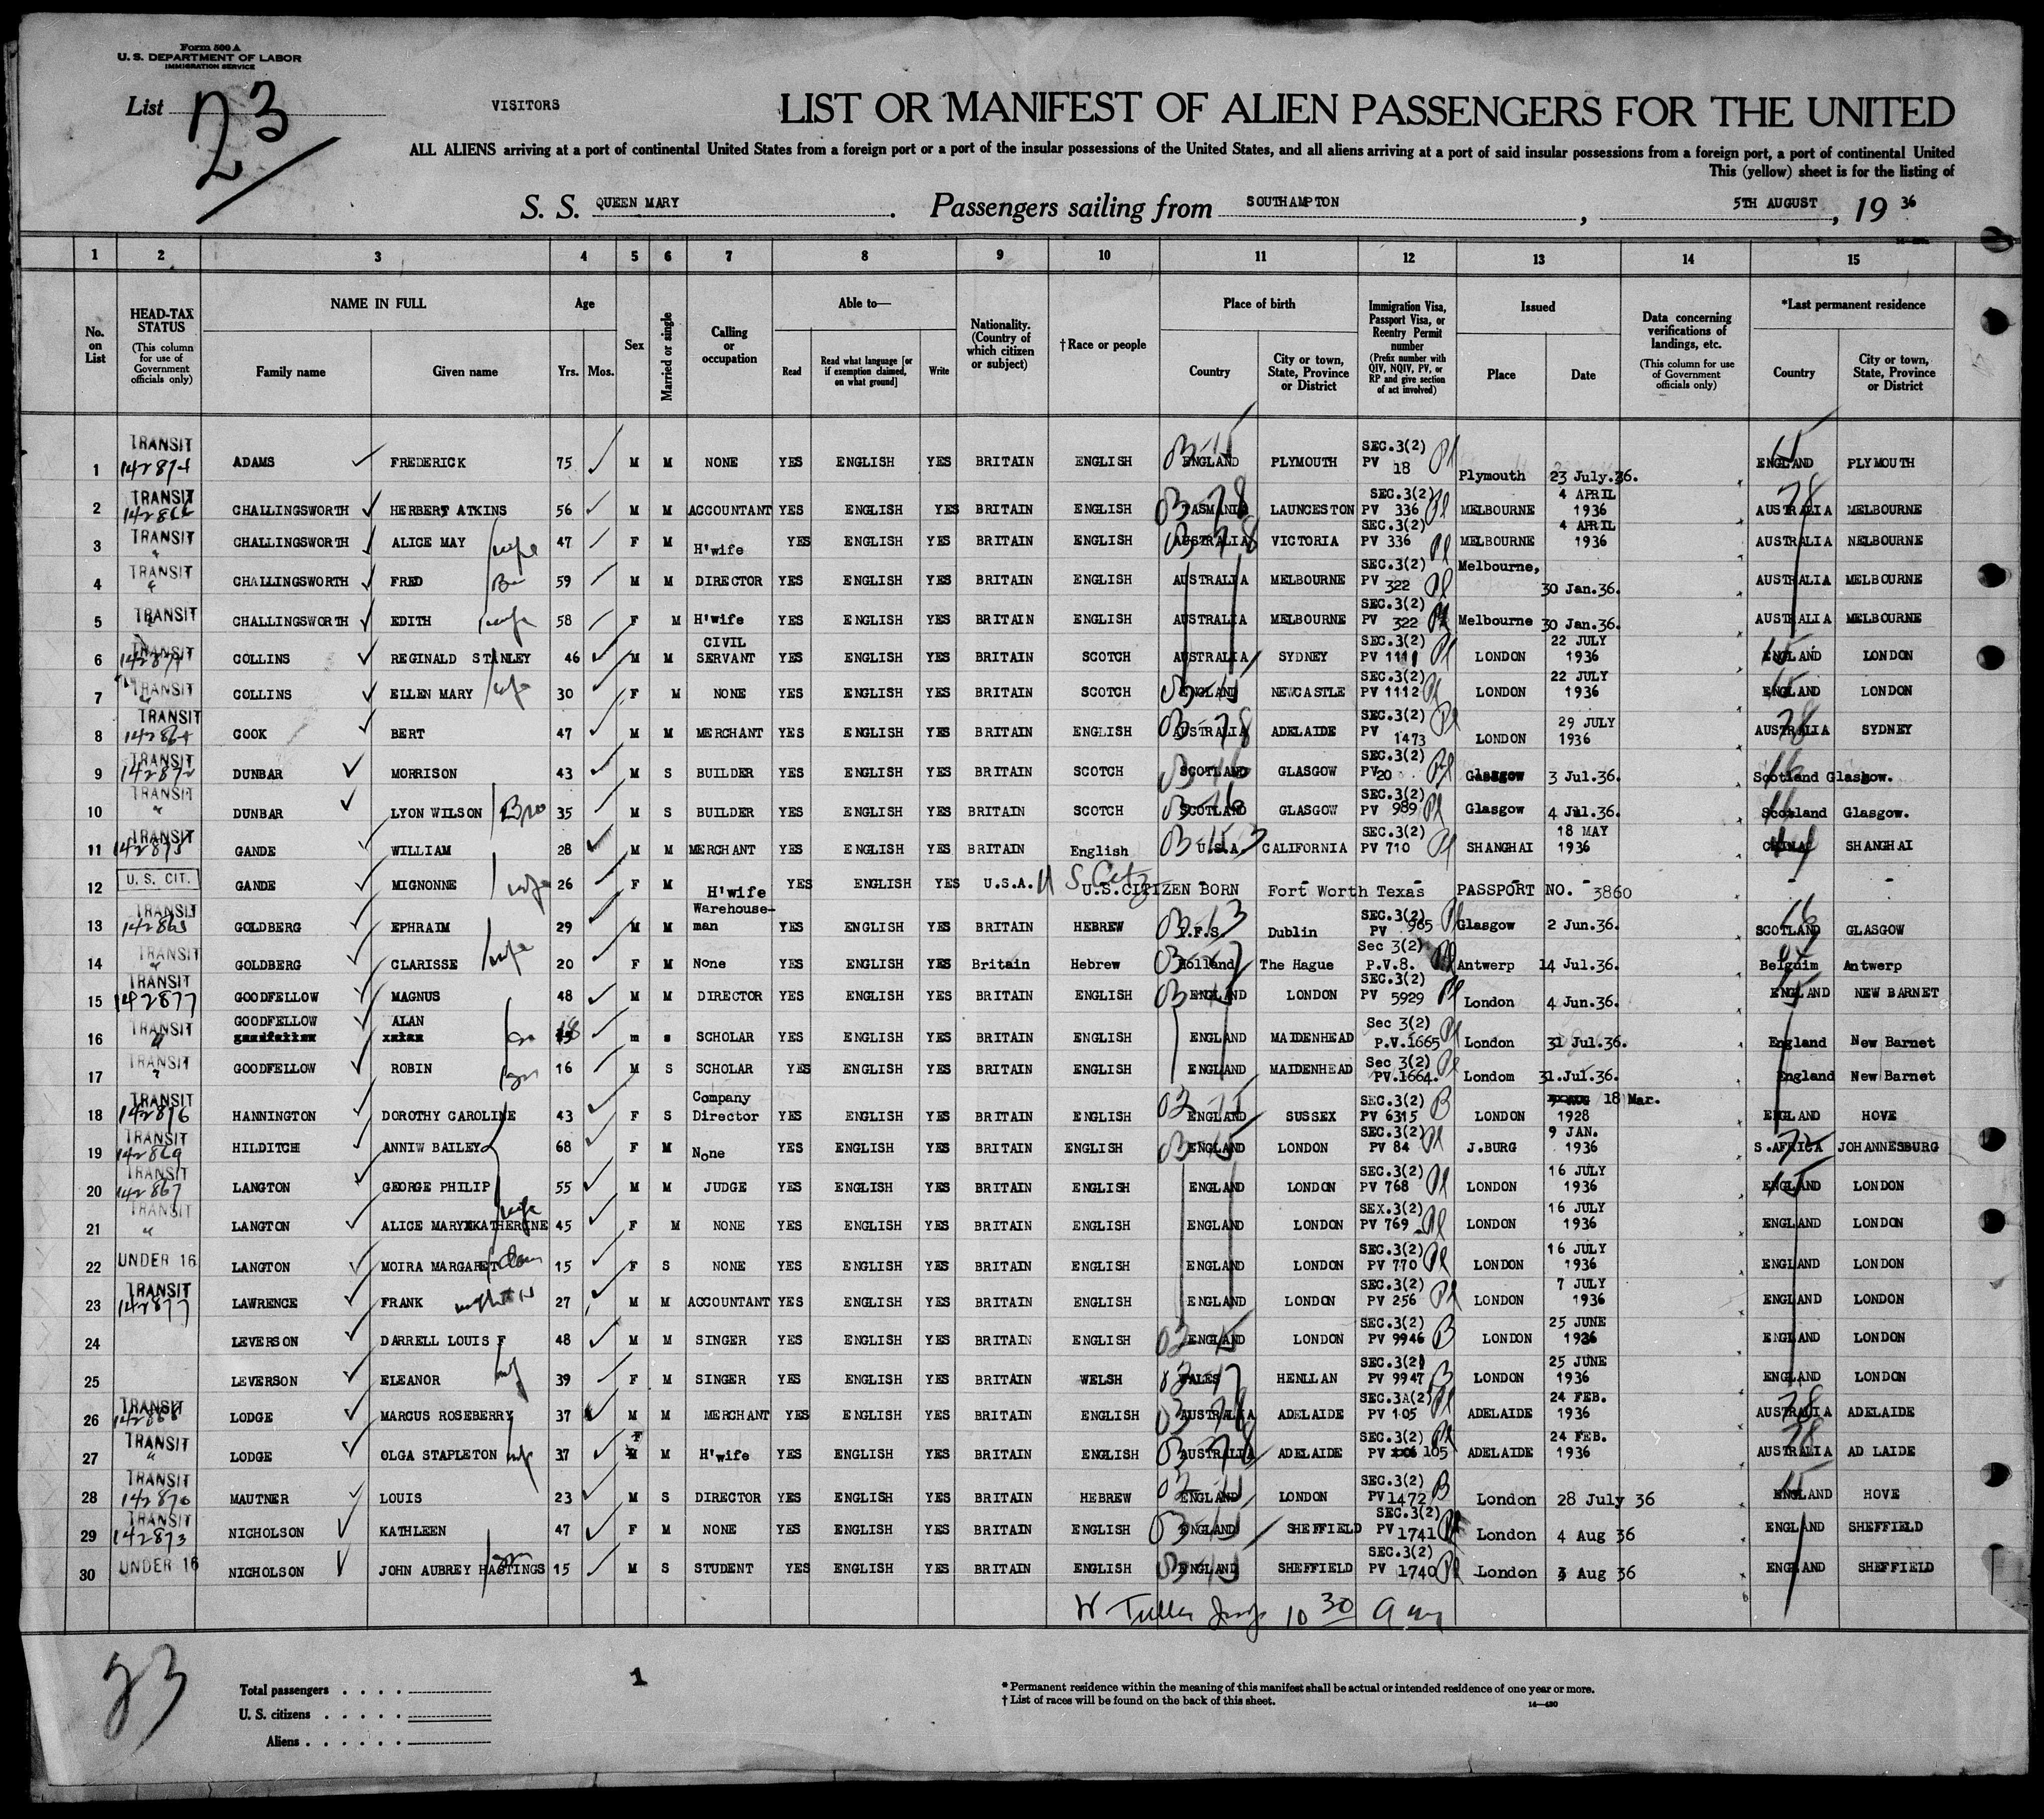 Form 500 A
U. S. DEPARTMENT OF LABOR
IMMIGRATION SERVICE
List 23
VISITORS
LIST OR MANIFEST OF ALIEN PASSENGERS FOR THE UNITED
ALL ALIENS arriving at a port of continental United States from a foreign port or a port of the insular possessions of the United States, and all aliens arriving at a port of said insular possessions from a foreign port, a port of continental United
This (yellow) sheet is for the listing of
S. S. QUEEN MARY. Passengers sailing from SOUTHAMPTON, 5TH AUGUST, 19 36
1 2 3 4 5 6 7 8 9 10 11 12 13 14 15
No. on List
HEAD-TAX STATUS (This column for use of Government officials only)
NAME IN FULL Family name Given name
Age Yrs. Mos.
Sex
Married or single
Calling or occupation
Able to— Read Read what language [or if exemption claimed, on what ground] Write
Nationality. (Country of which citizen or subject)
†Race or people
Place of birth Country City or town, State, Province or District
Immigration Visa, Passport Visa, or Reentry Permit number (Prefix number with QIV, NQIV, PV, or RP and give section of act involved)
Issued Place Date
Data concerning verifications of landings, etc. (This column for use of Government officials only)
*Last permanent residence Country City or town, State, Province or District
1 TRANSIT 142874 ADAMS FREDERICK 75 M M NONE YES ENGLISH YES BRITAIN ENGLISH ENGLAND PLYMOUTH SEC.3(2) PV 18 Plymouth 23 July.36. ENGLAND PLYMOUTH
2 TRANSIT 142866 CHALLINGSWORTH HERBERT ATKINS 56 M M ACCOUNTANT YES ENGLISH YES BRITAIN ENGLISH TASMANIA LAUNCESTON SEC.3(2) PV 336 MELBOURNE 4 APRIL 1936 AUSTRALIA MELBOURNE
3 TRANSIT " CHALLINGSWORTH ALICE MAY wife 47 F M H'wife YES ENGLISH YES BRITAIN ENGLISH AUSTRALIA VICTORIA SEC.3(2) PV 336 MELBOURNE 4 APRIL 1936 AUSTRALIA NELBOURNE
4 TRANSIT " CHALLINGSWORTH FRED 59 M M DIRECTOR YES ENGLISH YES BRITAIN ENGLISH AUSTRALIA MELBOURNE SEC.3(2) PV 322 Melbourne, 30 Jan.36. AUSTRALIA MELBOURNE
5 TRANSIT CHALLINGSWORTH EDITH wife 58 F M H'wife YES ENGLISH YES BRITAIN ENGLISH AUSTRALIA MELBOURNE SEC.3(2) PV 322 Melbourne 30 Jan.36. AUSTRALIA MELBOURNE
6 TRANSIT 142871 COLLINS REGINALD STANLEY 46 M M CIVIL SERVANT YES ENGLISH YES BRITAIN SCOTCH AUSTRALIA SYDNEY SEC.3(2) PV 1111 LONDON 22 JULY 1936 ENGLAND LONDON
7 TRANSIT " COLLINS ELLEN MARY wife 30 F M NONE YES ENGLISH YES BRITAIN SCOTCH ENGLAND NEWCASTLE SEC.3(2) PV 1112 LONDON 22 JULY 1936 ENGLAND LONDON
8 TRANSIT 142864 COOK BERT 47 M M MERCHANT YES ENGLISH YES BRITAIN ENGLISH AUSTRALIA ADELAIDE SEC.3(2) PV 1473 LONDON 29 JULY 1936 AUSTRALIA SYDNEY
9 TRANSIT 142872 DUNBAR MORRISON 43 M S BUILDER YES ENGLISH YES BRITAIN SCOTCH SCOTLAND GLASGOW SEC.3(2) PV20 Glasgow 3 Jul.36. Scotland Glasgow.
10 TRANSIT " DUNBAR LYON WILSON Bro 35 M S BUILDER YES ENGLISH YES BRITAIN SCOTCH SCOTLAND GLASGOW SEC.3(2) PV 989 Glasgow 4 Jul.36. Scotland Glasgow.
11 TRANSIT 142875 GANDE WILLIAM 28 M M MERCHANT YES ENGLISH YES BRITAIN English U.S.A. CALIFORNIA SEC.3(2) PV 710 SHANGHAI 18 MAY 1936 CHINA SHANGHAI
12 U. S. CIT. GANDE MIGNONNE wife 26 F M H'wife YES ENGLISH YES U.S.A. U S Citz U.S.CITIZEN BORN Fort Worth Texas PASSPORT NO. 3860 - -
13 TRANSIT 142865 GOLDBERG EPHRAIM 29 M M Warehouse-man YES ENGLISH YES BRITAIN HEBREW I.F.S. Dublin SEC.3(2) PV 965 Glasgow 2 Jun.36. SCOTLAND GLASGOW
14 TRANSIT " GOLDBERG CLARISSE wife 20 F M None YES ENGLISH YES Britain Hebrew Holland The Hague Sec 3(2) P.V.8. Antwerp 14 Jul.36. Belguim Antwerp
15 TRANSIT 142877 GOODFELLOW MAGNUS 48 M M DIRECTOR YES ENGLISH YES BRITAIN ENGLISH ENGLAND LONDON SEC.3(2) PV 5929 London 4 Jun.36. ENGLAND NEW BARNET
16 TRANSIT " GOODFELLOW ALAN 18 m s SCHOLAR YES ENGLISH YES BRITAIN ENGLISH ENGLAND MAIDENHEAD Sec 3(2) P.V.1665 London 31 Jul.36. England New Barnet
17 TRANSIT " GOODFELLOW ROBIN 16 M S SCHOLAR YES ENGLISH YES BRITAIN ENGLISH ENGLAND MAIDENHEAD Sec 3(2) PV.1664. Londom 31.Jul.36. England New Barnet
18 TRANSIT 142876 HANNINGTON DOROTHY CAROLINE 43 F S Company Director YES ENGLISH YES BRITAIN ENGLISH ENGLAND SUSSEX SEC.3(2) PV 6315 LONDON 18 Mar. 1928 ENGLAND HOVE
19 TRANSIT 142869 HILDITCH ANNIW BAILEY 68 F M None YES ENGLISH YES BRITAIN ENGLISH ENGLAND LONDON SEC.3(2) PV 84 J.BURG 9 JAN. 1936 S.AFRICA JOHANNESBURG
20 TRANSIT 142867 LANGTON GEORGE PHILIP 55 M M JUDGE YES ENGLISH YES BRITAIN ENGLISH ENGLAND LONDON SEC.3(2) PV 768 LONDON 16 JULY 1936 ENGLAND LONDON
21 TRANSIT " LANGTON ALICE MARYXKATHERINE wife 45 F M NONE YES ENGLISH YES BRITAIN ENGLISH ENGLAND LONDON SEX.3(2) PV 769 LONDON 16 JULY 1936 ENGLAND LONDON
22 UNDER 16 LANGTON MOIRA MARGARET dau 15 F S NONE YES ENGLISH YES BRITAIN ENGLISH ENGLAND LONDON SEC.3(2) PV 770 LONDON 16 JULY 1936 ENGLAND LONDON
23 TRANSIT 142877 LAWRENCE FRANK 27 M M ACCOUNTANT YES ENGLISH YES BRITAIN ENGLISH ENGLAND LONDON SEC.3(2) PV 256 LONDON 7 JULY 1936 ENGLAND LONDON
24 LEVERSON DARRELL LOUIS F 48 M M SINGER YES ENGLISH YES BRITAIN ENGLISH ENGLAND LONDON SEC.3(2) PV 9946 LONDON 25 JUNE 1936 ENGLAND LONDON
25 LEVERSON ELEANOR wf 39 F M SINGER YES ENGLISH YES BRITAIN WELSH WALES HENLLAN SEC.3(2) PV 9947 LONDON 25 JUNE 1936 ENGLAND LONDON
26 TRANSIT 142868 LODGE MARCUS ROSEBERRY 37 M M MERCHANT YES ENGLISH YES BRITAIN ENGLISH AUSTRALIA ADELAIDE SEC.3A(2) PV 105 ADELAIDE 24 FEB. 1936 AUSTRALIA ADELAIDE
27 TRANSIT " LODGE OLGA STAPLETON wf 37 F M H'wife YES ENGLISH YES BRITAIN ENGLISH AUSTRALIA ADELAIDE SEC.3(2) PV 105 ADELAIDE 24 FEB. 1936 AUSTRALIA AD LAIDE
28 TRANSIT 142870 MAUTNER LOUIS 23 M S DIRECTOR YES ENGLISH YES BRITAIN HEBREW ENGLAND LONDON SEC.3(2) PV1472 London 28 July 36 ENGLAND HOVE
29 TRANSIT 142873 NICHOLSON KATHLEEN 47 F M NONE YES ENGLISH YES BRITAIN ENGLISH ENGLAND SHEFFIELD SEC.3(2) PV 1741 London 4 Aug 36 ENGLAND SHEFFIELD
30 UNDER 16 NICHOLSON JOHN AUBREY HASTINGS son 15 M S STUDENT YES ENGLISH YES BRITAIN ENGLISH ENGLAND SHEFFIELD SEC.3(2) PV 1740 London 3 Aug 36 ENGLAND SHEFFIELD
10 30
23
Total passengers . . . .
1
U. S. citizens . . . . .
Aliens . . . . . .
* Permanent residence within the meaning of this manifest shall be actual or intended residence of one year or more.
† List of races will be found on the back of this sheet.
14—430